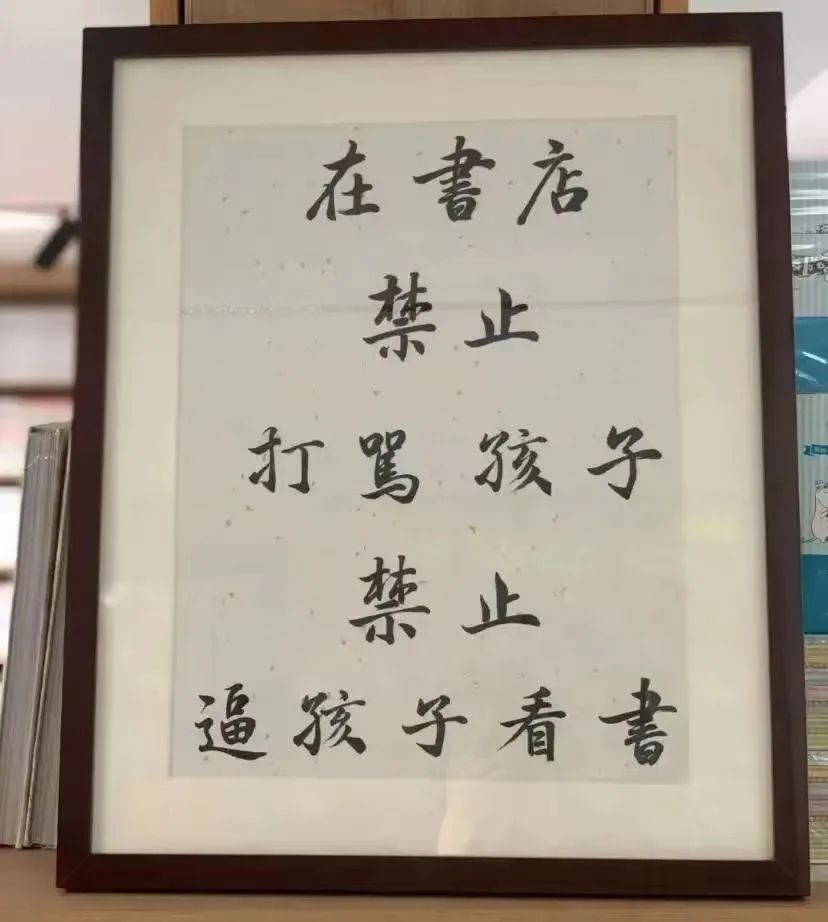 在書店
禁止
打駡孩子
禁止
逼孩子看書